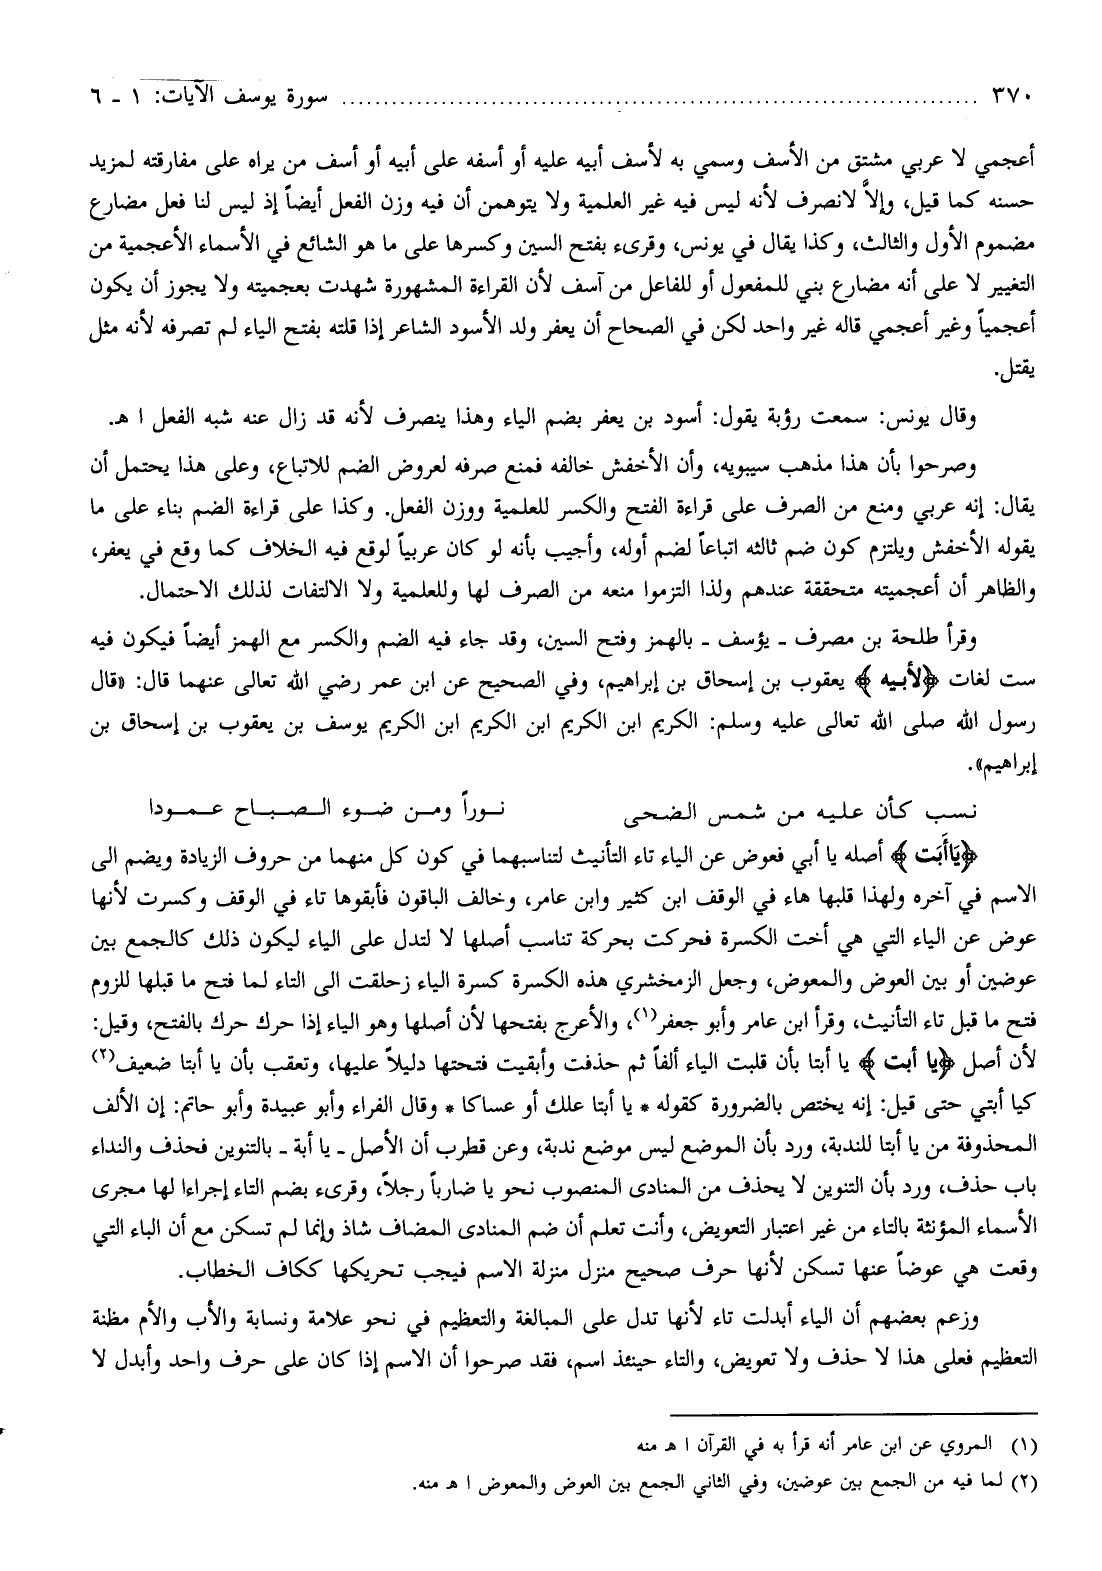 ٣٧٠ ........ سورة يوسف الآيات: ١ ـ ٦
أعجمي لا عربي مشتق من الأسف وسمي به لأسف أبيه عليه أو أسفه على أبيه أو أسف من يراه على مفارقته لمزيد
حسنه كما قيل، وإلاَّ لانصرف لأنه ليس فيه غير العلمية ولا يتوهمن أن فيه وزن الفعل أيضاً إذ ليس لنا فعل مضارع
مضموم الأول والثالث، وكذا يقال في يونس، وقرىء بفتح السين وكسرها على ما هو الشائع في الأسماء الأعجمية من
التغيير لا على أنه مضارع بني للمفعول أو للفاعل من آسف لأن القراءة المشهورة شهدت بعجميته ولا يجوز أن يكون
أعجمياً وغير أعجمي قاله غير واحد لكن في الصحاح أن يعفر ولد الأسود الشاعر إذا قلته بفتح الياء لم تصرفه لأنه مثل
يقتل.
وقال يونس: سمعت رؤبة يقول: أسود بن يعفر بضم الياء وهذا ينصرف لأنه قد زال عنه شبه الفعل ا هـ.
وصرحوا بأن هذا مذهب سيبويه، وأن الأخفش خالفه فمنع صرفه لعروض الضم للاتباع، وعلى هذا يحتمل أن
يقال: إنه عربي ومنع من الصرف على قراءة الفتح والكسر للعلمية ووزن الفعل. وكذا على قراءة الضم بناء على ما
يقوله الأخفش ويلتزم كون ضم ثالثه اتباعاً لضم أوله، وأجيب بأنه لو كان عربياً لوقع فيه الخلاف كما وقع في يعفر،
والظاهر أن أعجميته متحققة عندهم ولذا التزموا منعه من الصرف لها وللعلمية ولا الالتفات لذلك الاحتمال.
وقرأ طلحة بن مصرف ـ يؤسف ـ بالهمز وفتح السين، وقد جاء فيه الضم والكسر مع الهمز أيضاً فيكون فيه
ست لغات ﴿لأبيه﴾ يعقوب بن إسحاق بن إبراهيم، وفي الصحيح عن ابن عمر رضي الله تعالى عنهما قال: «قال
رسول الله صلى الله تعالى عليه وسلم: الكريم ابن الكريم ابن الكريم ابن الكريم يوسف بن يعقوب بن إسحاق بن
إبراهيم».
نسب كأن عليه من شمس الضحى نوراً ومن ضوء الصباح عمودا
﴿يَاأَبَت﴾ أصله يا أبي فعوض عن الياء تاء التأنيث لتناسبهما في كون كل منهما من حروف الزيادة ويضم الى
الاسم في آخره ولهذا قلبها هاء في الوقف ابن كثير وابن عامر، وخالف الباقون فأبقوها تاء في الوقف وكسرت لأنها
عوض عن الياء التي هي أخت الكسرة فحركت بحركة تناسب أصلها لا لتدل على الياء ليكون ذلك كالجمع بين
عوضين أو بين العوض والمعوض، وجعل الزمخشري هذه الكسرة كسرة الياء زحلقت الى التاء لما فتح ما قبلها للزوم
فتح ما قبل تاء التأنيث، وقرأ ابن عامر وأبو جعفر(١)، والأعرج بفتحها لأن أصلها وهو الياء إذا حرك حرك بالفتح، وقيل:
لأن أصل ﴿يا أبت﴾ يا أبتا بأن قلبت الياء ألفاً ثم حذفت وأبقيت فتحتها دليلاً عليها، وتعقب بأن يا أبتا ضعيف(٢)
كيا أبتي حتى قيل: إنه يختص بالضرورة كقوله * يا أبتا علك أو عساكا * وقال الفراء وأبو عبيدة وأبو حاتم: إن الألف
المحذوفة من يا أبتا للندبة، ورد بأن الموضع ليس موضع ندبة، وعن قطرب أن الأصل ـ يا أبة ـ بالتنوين فحذف والنداء
باب حذف، ورد بأن التنوين لا يحذف من المنادى المنصوب نحو يا ضارباً رجلاً، وقرىء بضم التاء إجراءا لها مجرى
الأسماء المؤنثة بالتاء من غير اعتبار التعويض، وأنت تعلم أن ضم المنادى المضاف شاذ وإنما لم تسكن مع أن الباء التي
وقعت هي عوضاً عنها تسكن لأنها حرف صحيح منزل منزلة الاسم فيجب تحريكها ككاف الخطاب.
وزعم بعضهم أن الياء أبدلت تاء لأنها تدل على المبالغة والتعظيم في نحو علامة ونسابة والأب والأم مظنة
التعظيم فعلى هذا لا حذف ولا تعويض، والتاء حينئذ اسم، فقد صرحوا أن الاسم إذا كان على حرف واحد وأبدل لا
(١) المروي عن ابن عامر أنه قرأ به في القرآن ا هـ منه
(٢) لما فيه من الجمع بين عوضين، وفي الثاني الجمع بين العوض والمعوض ا هـ منه.